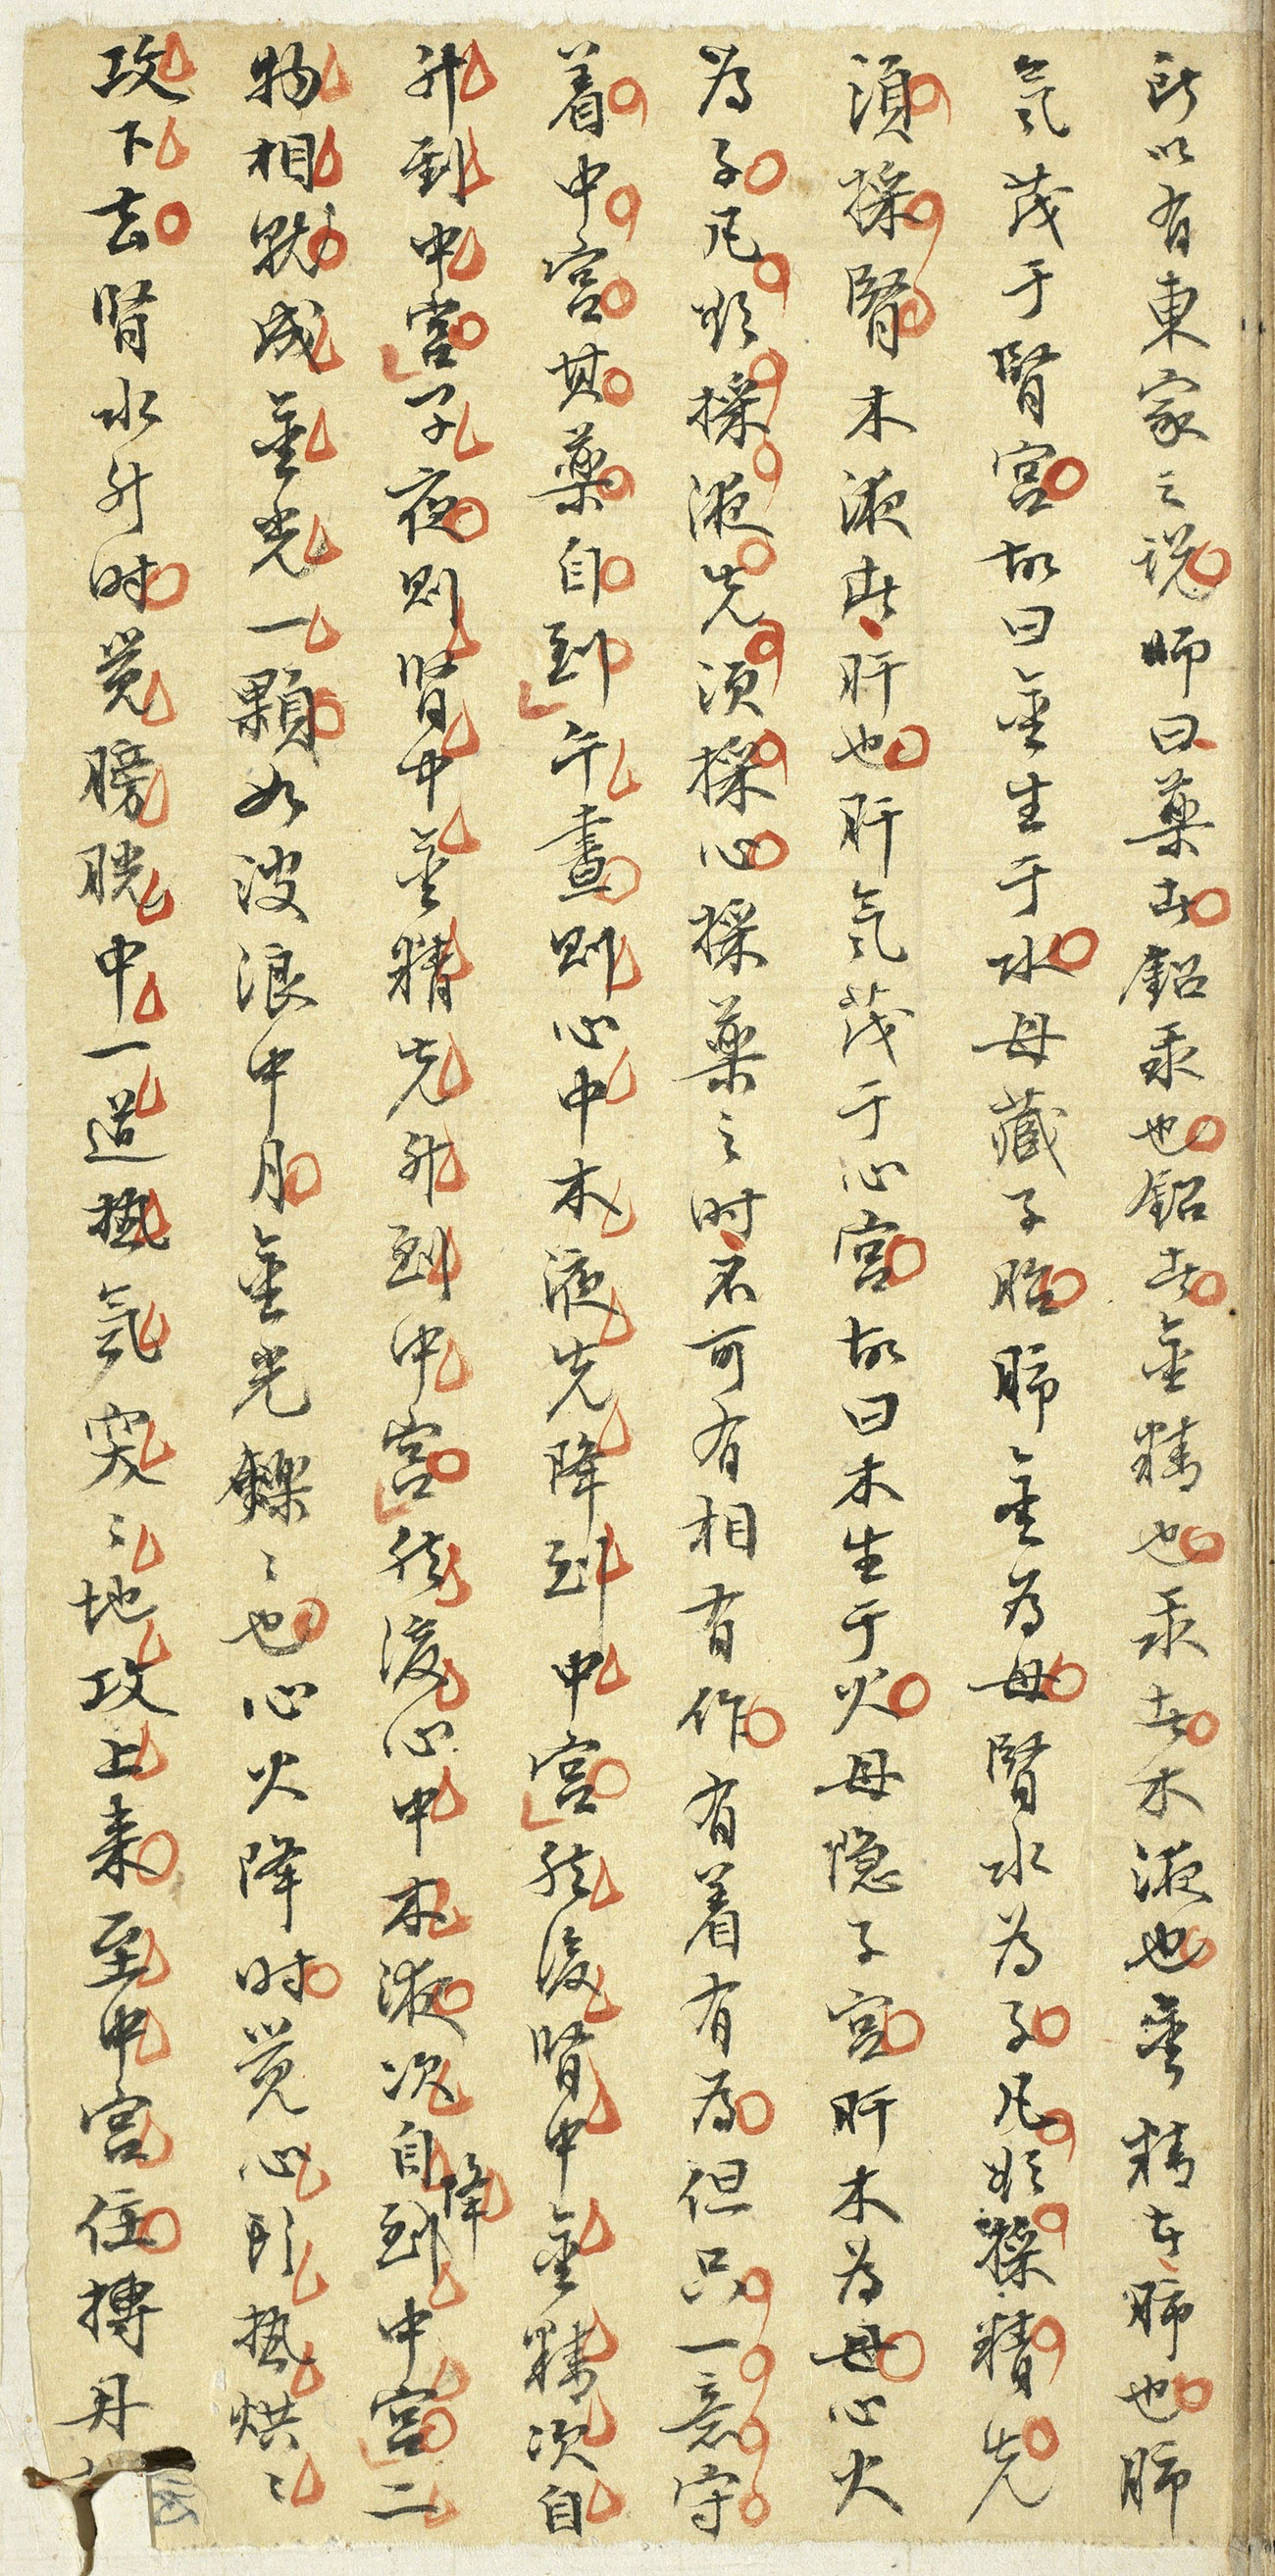 所以有東家之说师曰藥者鉛汞也鉛者金精也汞者木液也金精者肺也肺
氣茂于腎宫故曰金生于水母藏子胎肺金為母腎水為子凡欲採精先
須採腎木液者肝也肝氣茂于心宫故曰木生于火母隐子宫肝木為母心火
為子凡欲採液先須採心採藥之时不可有相有作有着有為但只一意守
着中宫其藥自到午晝则心中木液先降到中宫然後腎中金精次自
升到中宫子夜则腎中金精先升到中宫然後心中木液次自降到中宫二
物相就成金光一顆如波浪中月金光鑠〻也心火降时覚心肝热烘〻
攻下去腎水升时覚膀胱中一道热氣突〻地攻上来至中宫住摶丹